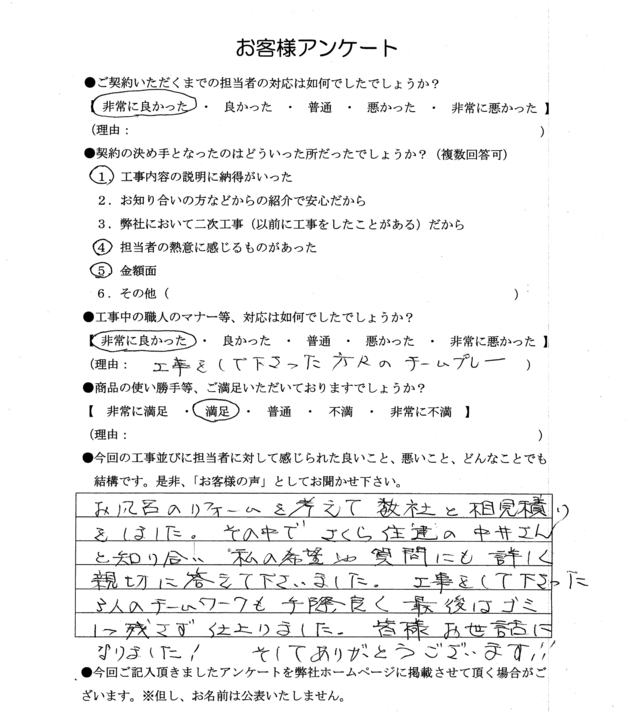 お客様アンケート
●ご契約いただくまでの担当者の対応は如何でしたでしょうか？
【 非常に良かった ・ 良かった ・ 普通 ・ 悪かった ・ 非常に悪かった 】
（理由： ）
●契約の決め手となったのはどういった所だったでしょうか？（複数回答可）
1．工事内容の説明に納得がいった
2．お知り合いの方などからの紹介で安心だから
3．弊社において二次工事（以前に工事をしたことがある）だから
4．担当者の熱意に感じるものがあった
5．金額面
6．その他（ ）
●工事中の職人のマナー等、対応は如何でしたでしょうか？
【 非常に良かった ・ 良かった ・ 普通 ・ 悪かった ・ 非常に悪かった 】
（理由： 工事をして下さった方々のチームプレー ）
●商品の使い勝手等、ご満足いただいておりますでしょうか？
【 非常に満足 ・ 満足 ・ 普通 ・ 不満 ・ 非常に不満 】
（理由： ）
●今回の工事並びに担当者に対して感じられた良いこと、悪いこと、どんなことでも
結構です。是非、「お客様の声」としてお聞かせ下さい。
お風呂のリフォームを考えて数社と相見積り
をしました。その中でさくら住建の中井さん
と知り合い 私の希望や質問にも詳しく
親切に答えて下さいました。工事をして下さった
3人のチームワークも手際良く最後はゴミ
1つ残さず仕上りました。皆様お世話に
なりました！ そしてありがとうございます!!
●今回ご記入頂きましたアンケートを弊社ホームページに掲載させて頂く場合がご
ざいます。※但し、お名前は公表いたしません。